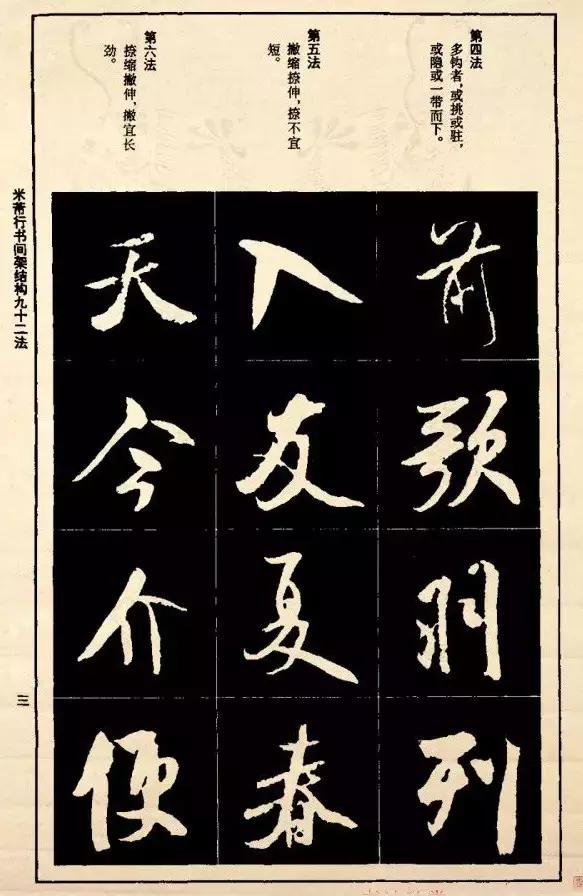 第四法
多钩者，或挑或驻，
或隐或一带而下。
前歌羽列
第五法
撇缩捺伸，捺不宜
短。
入友夏春
第六法
捺缩撇伸，撇宜长
劲。
天今介便
米芾行书间架结构九十二法
三